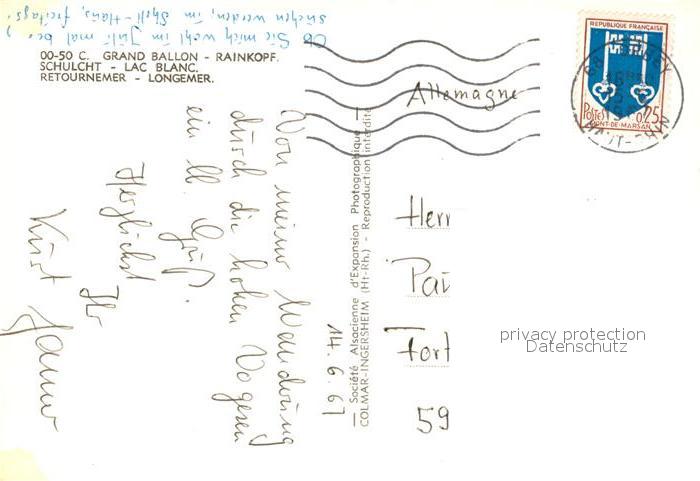 Ob Sie mich wohl im Juli mal be?
suchen werden, im Shell-Haus, freitags.
00-50 C. GRAND BALLON - RAINKOPF.
SCHULCHT - LAC BLANC.
RETOURNEMER - LONGEMER.
14.6.67
Von meiner Wanderung
durch die hohen Vogesen
ein ll. Gruß.
Herzlichst
Ihr
Kurt
Société Alsacienne d'Expansion Photographique
COLMAR-INGERSHEIM (Ht-Rh.) - Reproduction interdite
REPUBLIQUE FRANÇAISE
POSTES 0,25
MONT-DE-MARSAN
68
HAUT-RHIN
Allemagne
Herr
Pai
Fort
59
privacy protection
Datenschutz